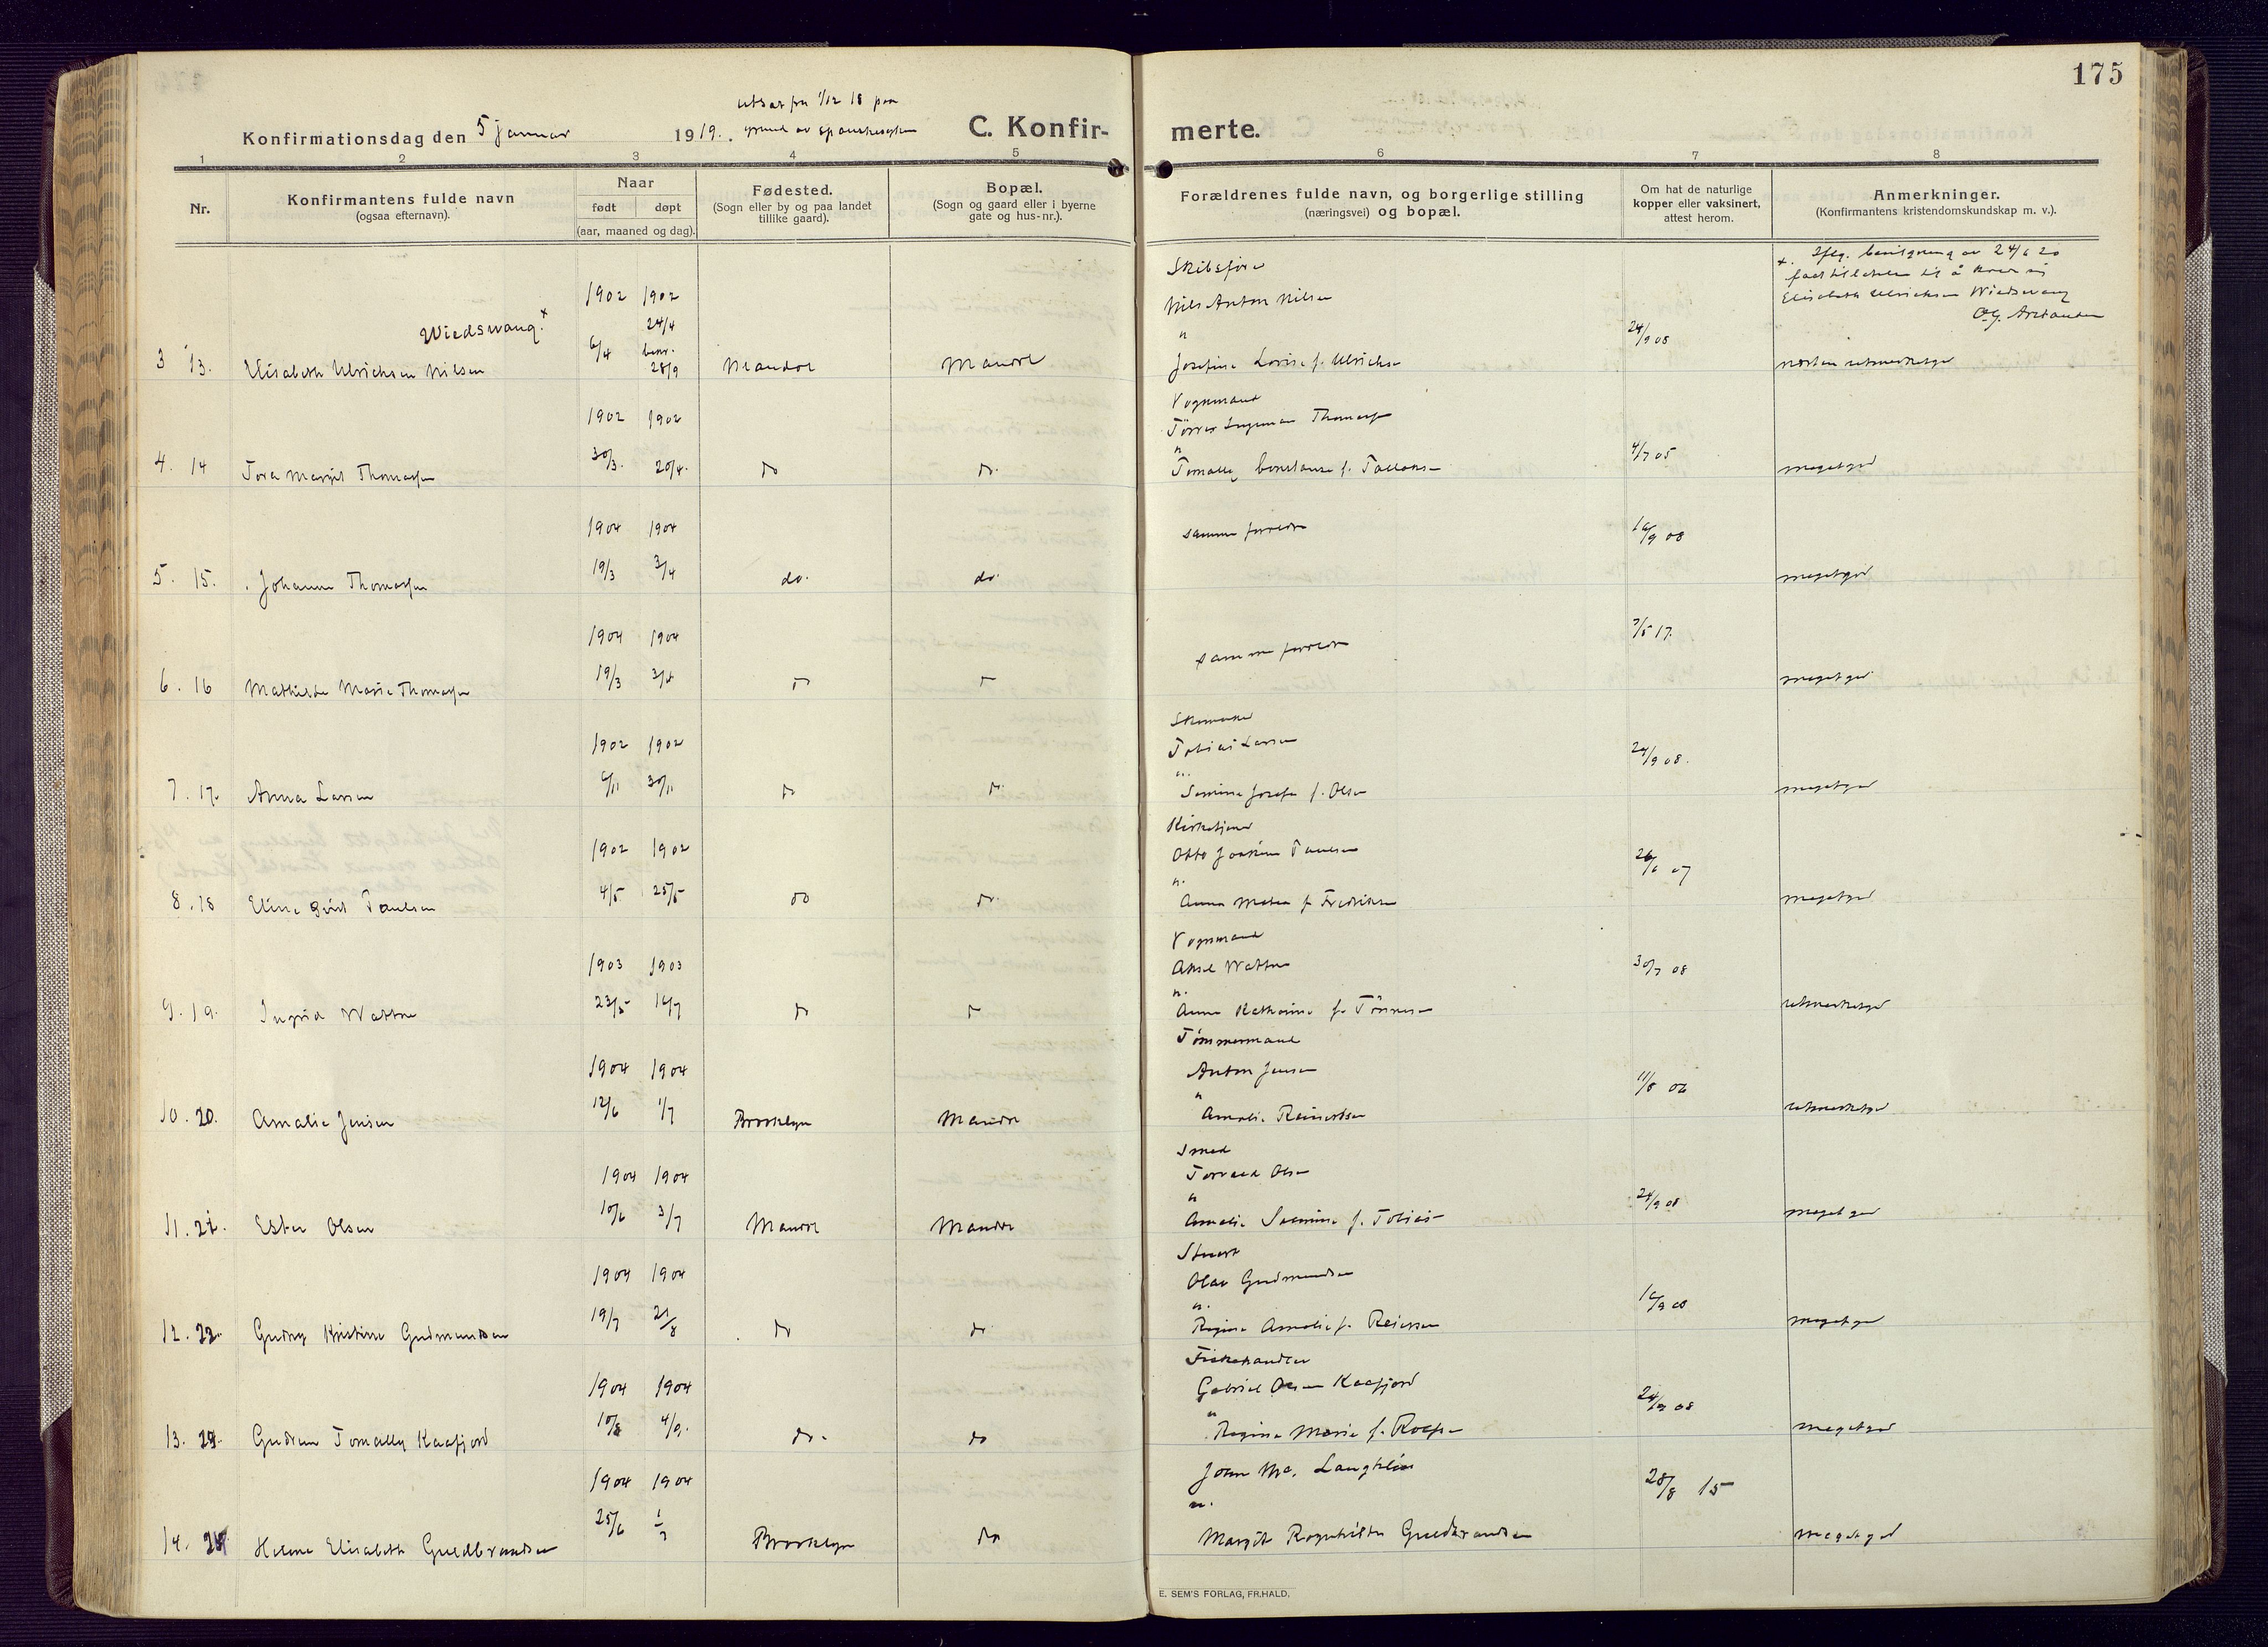 175
utsat fra 1/12 18 paa
Konfirmationsdag den 5 januar 1919. grund av spanskesyken
C. Konfir-merte.
1 2 3 4 5 6 7 8
Nr.
Konfirmantens fulde navn
(ogsaa efternavn).
Naar
født døpt
(aar, maaned og dag).
Fødested.
(Sogn eller by og paa landet
tillike gaard).
Bopæl.
(Sogn og gaard eller i byerne
gate og hus-nr.).
Forældrenes fulde navn, og borgerlige stilling
(næringsvei) og bopæl.
Om hat de naturlige
kopper eller vaksinert,
attest herom.
Anmerkninger.
(Konfirmantens kristendomskundskap m. v.).
+. Iflg. bevilgning av 24/6 20
Elisabeth Ulrichsen Wiedswang
Skibsfører
1902 1902 Nils Anton Nilsen
Wiedswang.+
24/4
6/4 bekr. " 24/9 08
3 13. Elisabeth Ulrichsen Nilsen 28/9 Mandal Mandal Josefine Lovise f. Ulrichsen næsten utmerketgod
Vognmand
1902 1902 Thomassen
" 4/7 05
4. 14 Tora Margit Thomassen 30/3. 20/4. do do. Tomally Constance f. meget god
1904 1904 samme forældre 16/9 08
5. 15. Johanne Thomassen 19/3 3/4 do. do. meget god
1904 1904 samme forældre 7/5 17.
6. 16 Mathilde Marie Thomassen 19/3 3/4 do do meget god
Skomaker
1902 1902 Tobias Larsen 24/9 08.
"
7. 17. Anna Larsen 6/11 30/11 do do. Josefa f. Olsen meget god
Kirketjener
1902 1902 Otto Joakim Paulsen 26/6 07
"
8. 18 Paulsen 4/5 25/5 do do. Anna f. Fredriksen meget god
Vognmand
1903 1903 Aksel Wattne 30/7 08
"
9. 19. Ingrid Wattne 23/5 16/7 do do Anna Kathrine f. Tönnesen utmerketgod
Tømmermand
1904 1904 Anton Jensen 11/8 06
"
10. 20. Amalie Jensen 12/6 1/7 Brooklyn Mandal Amalie Reinertsen utmerketgod
Smed
1904 1904 Torvald Olsen 24/9 08
"
11. 21. Ester Olsen 10/6 3/7 Mandal Mandal Amalie f. Tobias- meget god
Stuert
1904 1904 Olav Gudmundsen
" 16/9 08
12. 22. Gudny Kristine Gudmundsen 19/7 21/8 do do. Regine Amalie f. Reiersen meget god
Fiskehandler
1904 1904 Gabriel Olsen Kaafjord 24/9 08
"
13. 23. Gudrun Tomally Kaafjord 10/8 4/9. do. do Regine Marie f. meget god
1904 1904 John Mc. Laughlin 28/8 15
".
14. 24 Helene Elisabeth Guldbrandsen 25/6 Brooklyn do Margit Ragnhilda Guldbrandsen meget god
E. SEM'S FORLAG, FR.HALD.